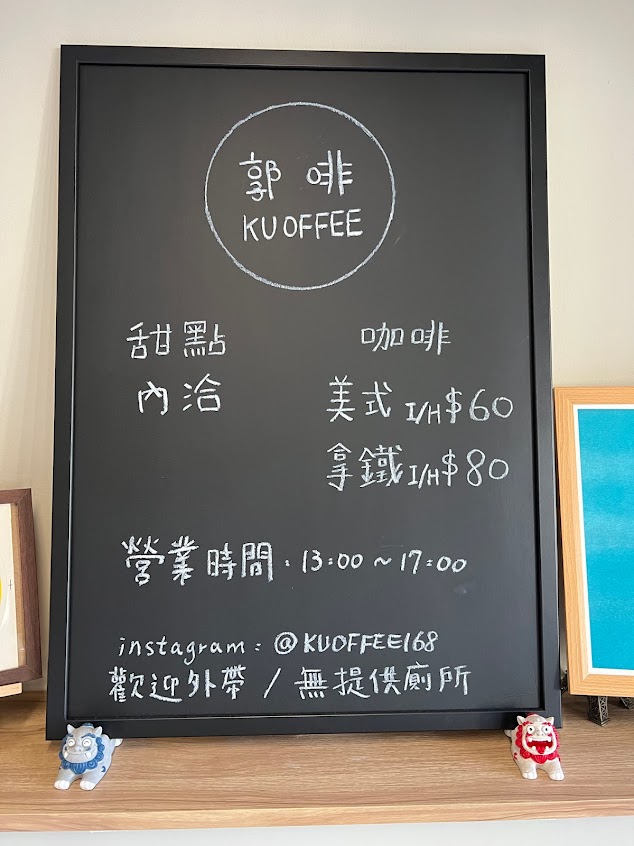 郭 啡
KUOFFEE
甜點
內洽
咖啡
美式 I/H $60
拿鐵 I/H $80
營業時間：13:00～17:00
instagram：@KUOFFEE168
歡迎外帶 / 無提供廁所